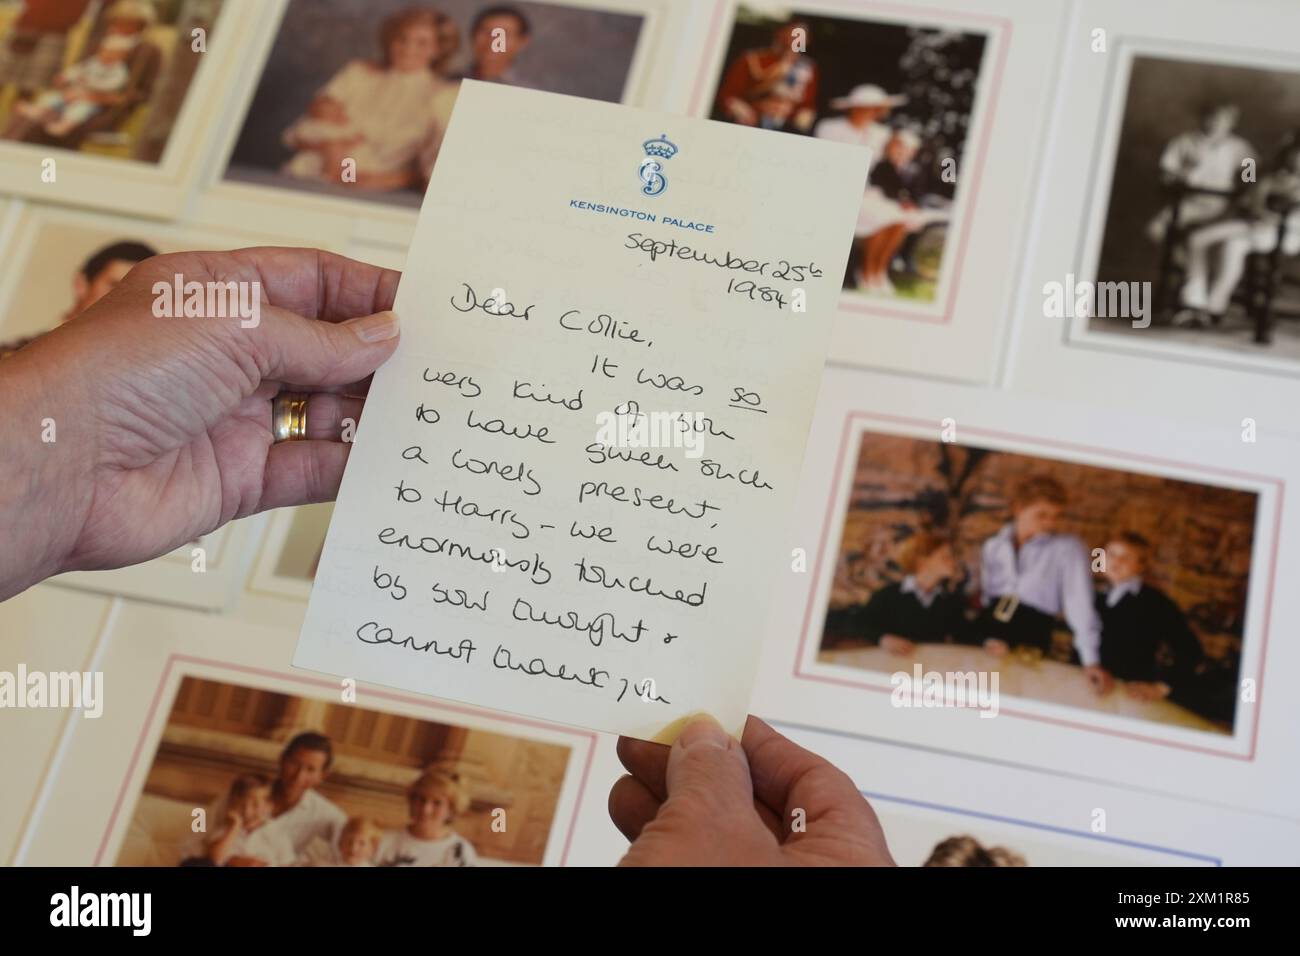 KENSINGTON PALACE
September 25th
1984.
Dear Collie,
It was so
very kind of you
to have given such
a lovely present,
to Harry - we were
enormously touched
by your thought &
cannot thank you
a
alamy
Image ID: 2XM1R85
www.alamy.com